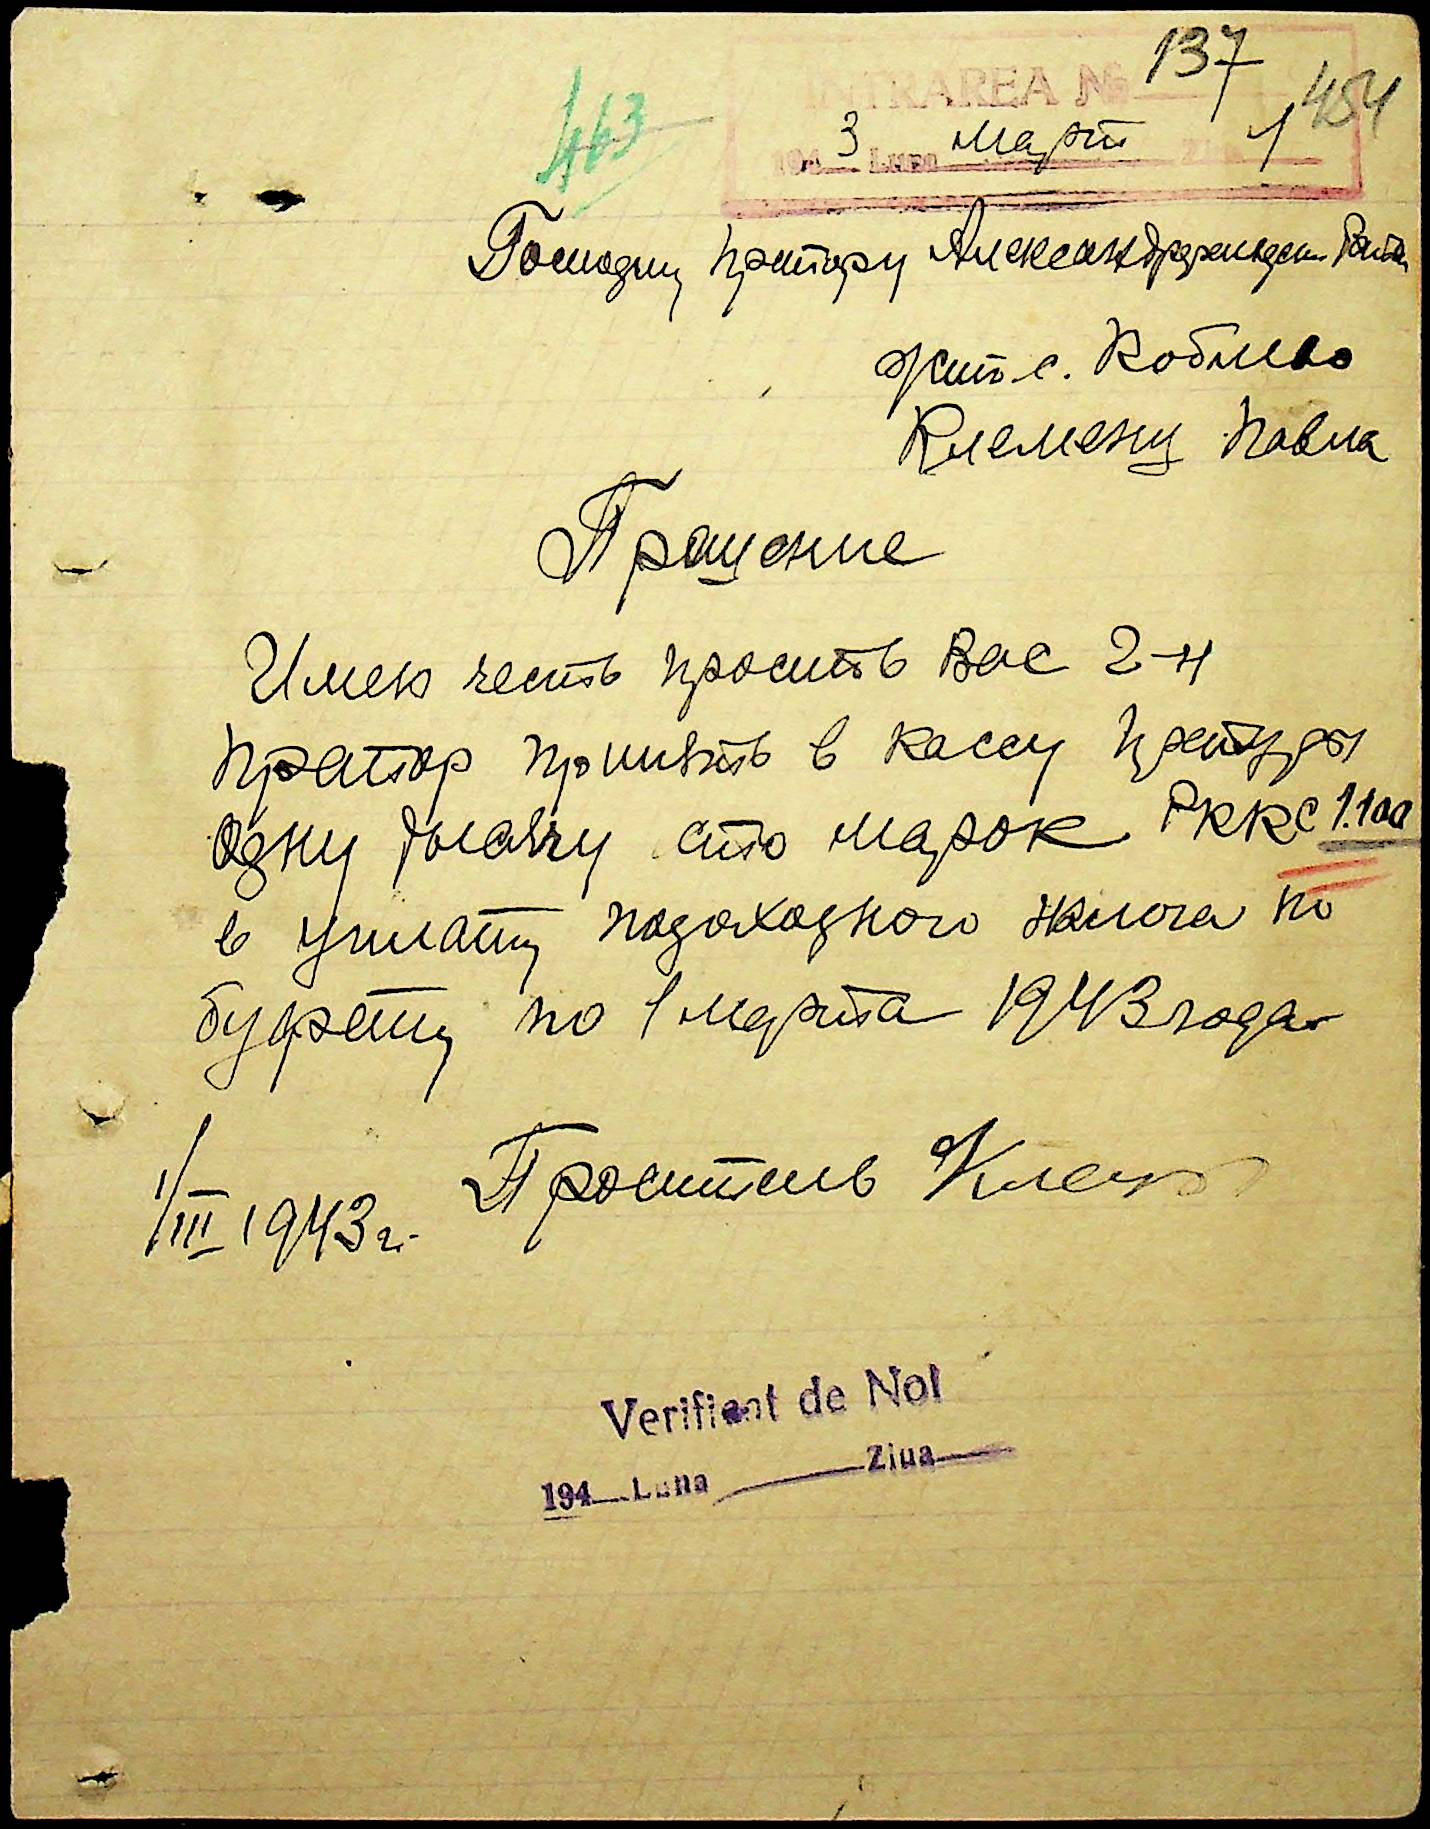 137
INTRAREA №
454
463
194 3 Luna Март Ziua 1
Господину Претору Александрфельдск. Рай
жит. с. Коблево
Клеменц Павла
Прошение
Имею честь просить Вас г-н
Претор принять в кассу Претуры
одну тысячу сто марок РККС 1.100
в уплату подоходного налога по
буфету по 1 марта 1943 года
1/III 1943 г. Проситель
Verificat de Noi
194 Luna Ziua